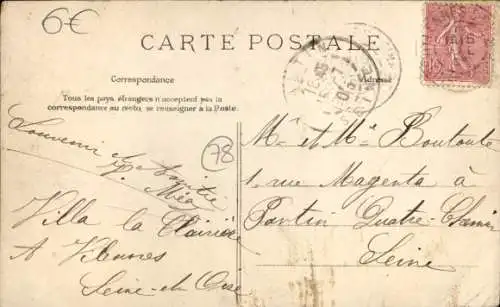 6€
CARTE POSTALE
Correspondance
Adresse
Tous les pays étrangers n'acceptent pas la
correspondance au recto, se renseigner à la Poste.
Souvenir et Amitié
78
Villa la Clairière
A
Seine-et-Oise
Mr et Me Boutoute
1, rue Magenta à
Pantin Quatre-Chemins
Seine